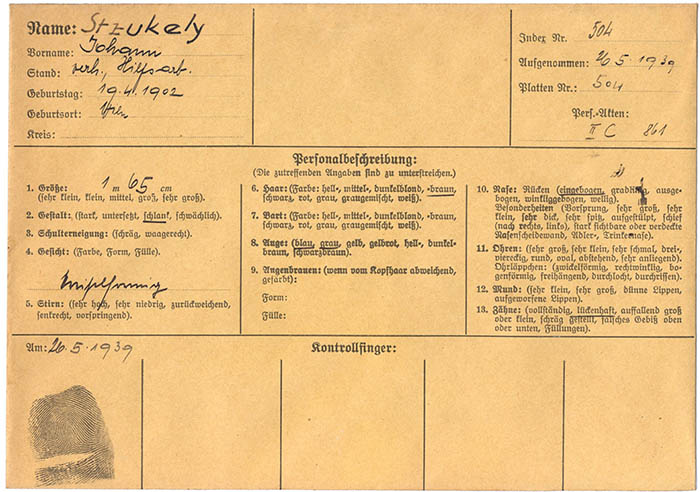 Name: Strukely
Vorname: Johann
Stand: verh., Hilfsarb.
Geburtstag: 19.4.1902
Geburtsort: Wien
Kreis:
Index Nr. 504
Aufgenommen: 26.5.1939
Platten Nr.: 504
Pers.-Akten:
II C 861
Personalbeschreibung:
(Die zutreffenden Angaben sind zu unterstreichen.)
1. Größe: 1 m 65 cm
(sehr klein, klein, mittel, groß, sehr groß).
2. Gestalt: (stark, untersetzt, schlank, schwächlich).
3. Schulterneigung: (schräg, waagerecht).
4. Gesicht: (Farbe, Form, Fülle).
5. Stirn: (sehr hoch, sehr niedrig, zurückweichend,
senkrecht, vorspringend).
6. Haar: (Farbe: hell-, mittel-, dunkelblond, -braun,
schwarz, rot, grau, graugemischt, weiß).
7. Bart: (Farbe: hell-, mittel-, dunkelblond, -braun,
schwarz, rot, grau, graugemischt, weiß).
8. Auge: (blau, grau, gelb, gelbrot, hell-, dunkel-
braun, schwarzbraun).
9. Augenbrauen: (wenn vom Kopfhaar abweichend,
gefärbt):
Form:
Fülle:
10. Nase: Rücken (eingebogen, gradlinig, ausge-
bogen, winkliggebogen, wellig).
Besonderheiten (Vorsprung, sehr groß, sehr
klein, sehr dick, sehr spitz, aufgestülpt, schief
(nach rechts, links), stark sichtbare oder verdeckte
Nasenscheidewand, Adler-, Trinkernase).
11. Ohren: (sehr groß, sehr klein, sehr schmal, drei-,
viereckig, rund, oval, abstehend, sehr anliegend).
Ohrläppchen: (zwickelförmig, rechtwinklig, bo-
genförmig, freihängend, durchlocht, durchrissen).
12. Mund: (sehr klein, sehr groß, dünne Lippen,
aufgeworfene Lippen).
13. Zähne: (vollständig, lückenhaft, auffallend groß
oder klein, schräg gestellt, falsches Gebiß oben
oder unten, Füllungen).
Am: 26.5.1939
Kontrollfinger: